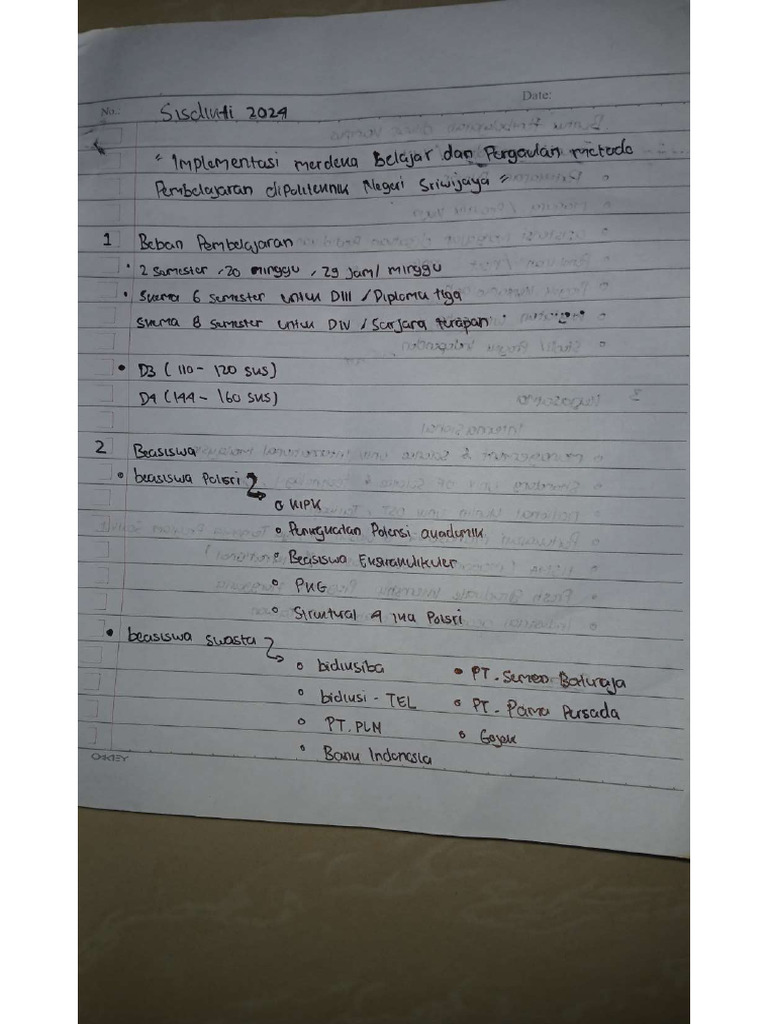 No.:
Date:
Sisdikti 2024
"Implementasi merdeka Belajar dan Pergaulan metode
Pembelajaran dipoliteknik Negeri Sriwijaya"
1 Beban Pembelajaran
• 2 semester, 20 minggu, 29 jam/ minggu
• skema 6 semester untuk DIII / Diploma tiga
skema 8 semester untuk DIV / Sarjara terapan
• D3 ( 110 - 120 sks)
D4 (144 - 160 sks)
2 Beasiswa
• beasiswa Polsri
o KIPK
o Penguatan Potensi akademik
o Beasiswa Ekstrakulikuler
o PKG
o Struktural 4 jua Polsri
• beasiswa swasta
o bidiksiba
o bidiksi - TEL
o PT. PLN
o Bank Indonesia
• PT. Semen Baturaja
o PT. Pama Persada
o Gojek